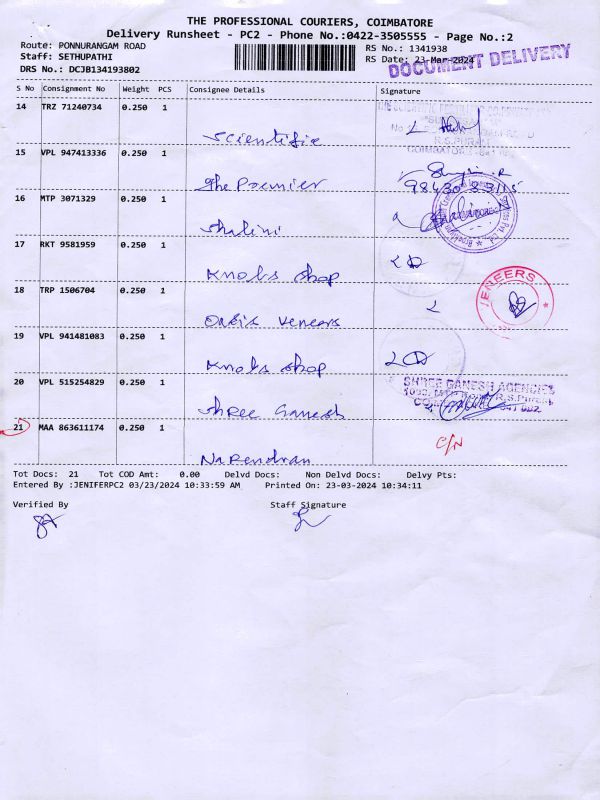 THE PROFESSIONAL COURIERS, COIMBATORE
Delivery Runsheet - PC2 - Phone No.:0422-3505555 - Page No.:2
Route: PONNURANGAM ROAD RS No.: 1341938
Staff: SETHUPATHI RS Date: 23-Mar-2024
DRS No.: DCJB134193802
DOCUMENT DELIVERY
S No Consignment No Weight PCS Consignee Details Signature
14 TRZ 71240734 0.250 1
Scientific
15 VPL 947413336 0.250 1
The Premier
16 MTP 3071329 0.250 1
Shalini
17 RKT 9581959 0.250 1
Knobs shop
18 TRP 1506704 0.250 1
JENEERS
Orbis Veneers
19 VPL 941481083 0.250 1
Knobs shop
20 VPL 515254829 0.250 1
SHREE GANESH AGENCIES
Shree Ganesh
21 MAA 863611174 0.250 1
C/N
Narendran
Tot Docs: 21 Tot COD Amt: 0.00 Delvd Docs: Non Delvd Docs: Delvy Pts:
Entered By :JENIFERPC2 03/23/2024 10:33:59 AM Printed On: 23-03-2024 10:34:11
Verified By Staff Signature